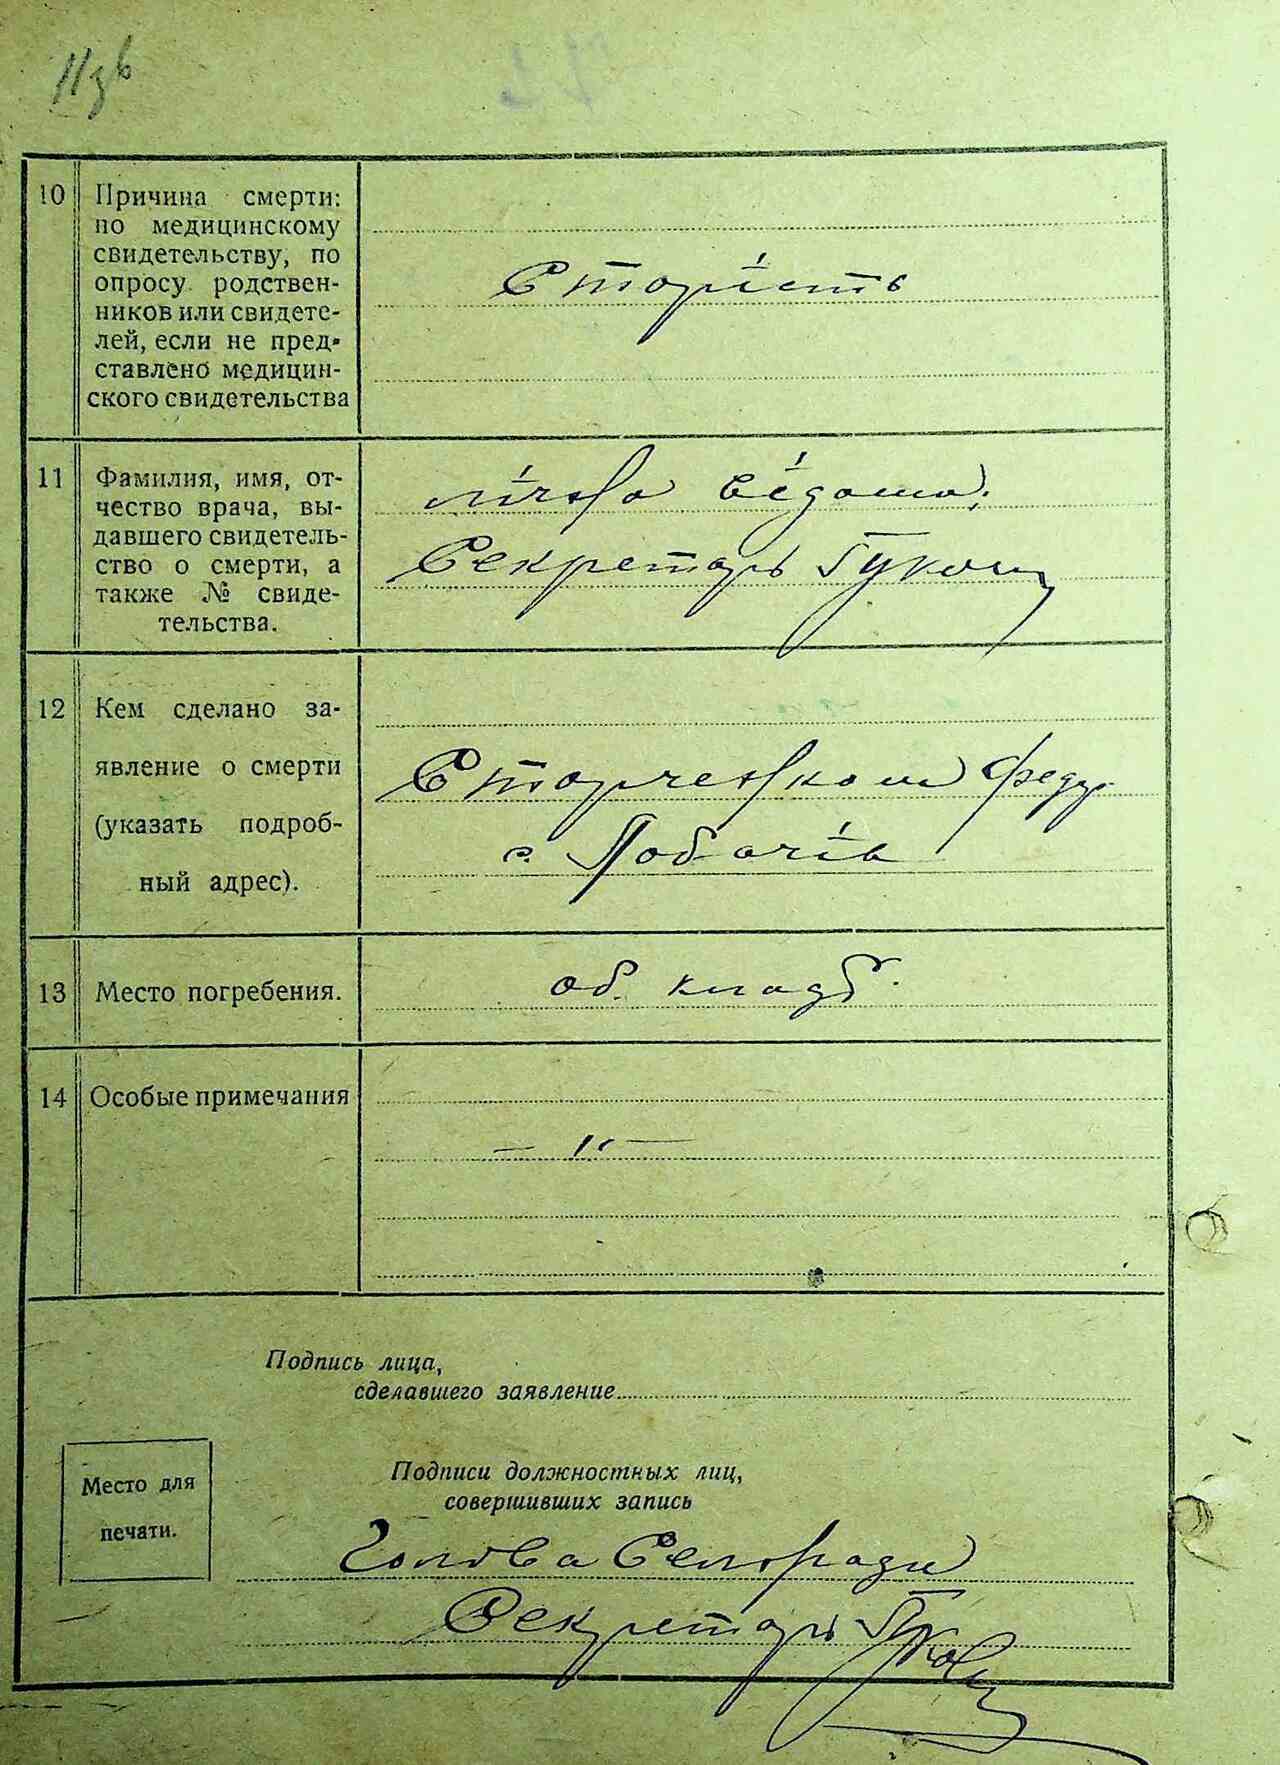 11зв
10 Причина смерти:
по медицинскому
свидетельству, по
опросу родствен-
ников или свидете-
лей, если не пред-
ставлено медицин-
ского свидетельства
Старість
11 Фамилия, имя, от-
чество врача, вы-
давшего свидетель-
ство о смерти, а
также № свиде-
тельства.
відома.
Секретарь
12 Кем сделано за-
явление о смерти
(указать подроб-
ный адрес).
Федр
с. Лобачів
13 Место погребения.
об. кладб.
14 Особые примечания
— " —
Подпись лица,
сделавшего заявление
Место для
печати.
Подписи должностных лиц,
совершивших запись
Голова Сельради
Секретарь